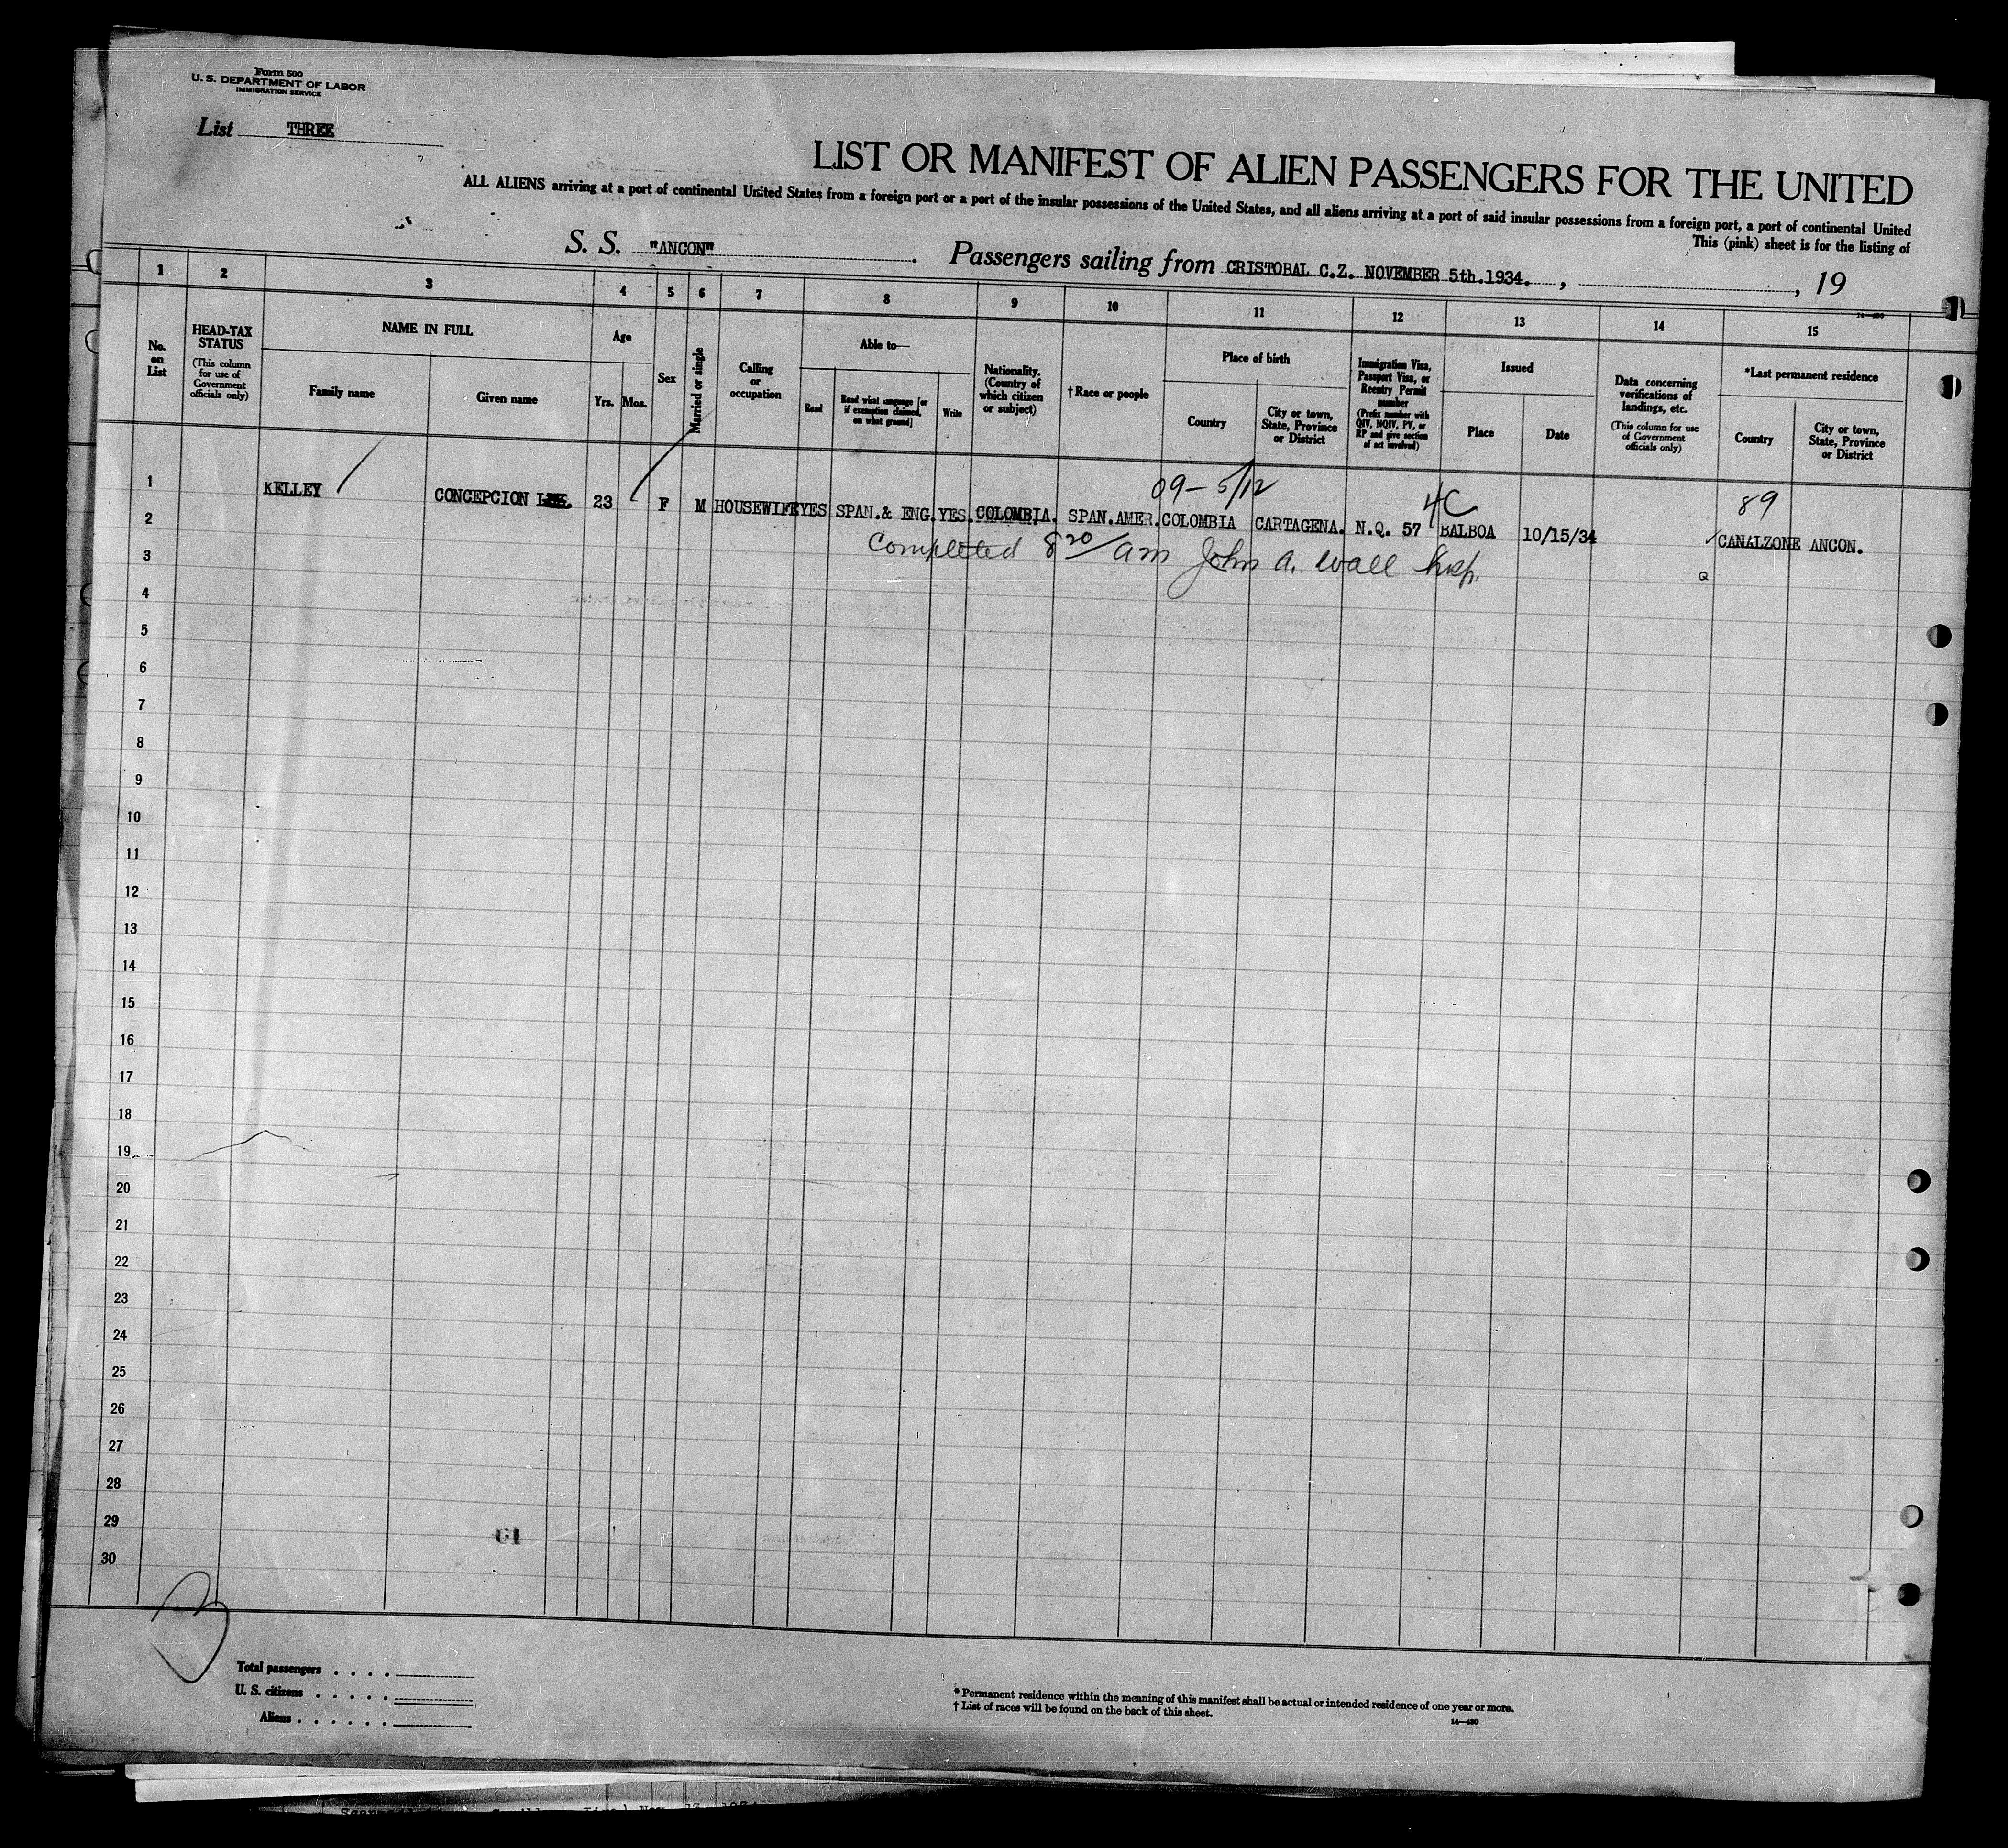 Form 500
U. S. DEPARTMENT OF LABOR
IMMIGRATION SERVICE
List THREE
LIST OR MANIFEST OF ALIEN PASSENGERS FOR THE UNITED
ALL ALIENS arriving at a port of continental United States from a foreign port or a port of the insular possessions of the United States, and all aliens arriving at a port of said insular possessions from a foreign port, a port of continental United
This (pink) sheet is for the listing of
S. S. "ANCON" . Passengers sailing from CRISTOBAL C.Z. NOVEMBER 5th.1934. , , 19
14-430
1 2 3 4 5 6 7 8 9 10 11 12 13 14 15
No. on List
HEAD-TAX STATUS
(This column for use of Government officials only)
NAME IN FULL
Family name
Given name
Age
Yrs. Mos.
Sex
Married or single
Calling or occupation
Able to—
Read
Read what language [or if exemption claimed, on what ground]
Write
Nationality. (Country of which citizen or subject)
† Race or people
Place of birth
Country
City or town, State, Province or District
Immigration Visa, Passport Visa, or Reentry Permit number
(Prefix number with QIV, NQIV, PV, or RP and give section of act involved)
Issued
Place
Date
Data concerning verifications of landings, etc.
(This column for use of Government officials only)
*Last permanent residence
Country
City or town, State, Province or District
09-5/12
4C
89
1 KELLEY CONCEPCION 23 F M HOUSEWIFE YES SPAN.& ENG. YES. COLOMBIA. SPAN.AMER. COLOMBIA CARTAGENA. N.Q. 57 BALBOA 10/15/34 CANALZONE ANCON.
2
Completed 8 20/ am John A. Wall Insp.
3
4
5
6
7
8
9
10
11
12
13
14
15
16
17
18
19
20
21
22
23
24
25
26
27
28
29
30
61
Total passengers . . . .
U. S. citizens . . . . .
Aliens . . . . . .
* Permanent residence within the meaning of this manifest shall be actual or intended residence of one year or more.
† List of races will be found on the back of this sheet.
14-430